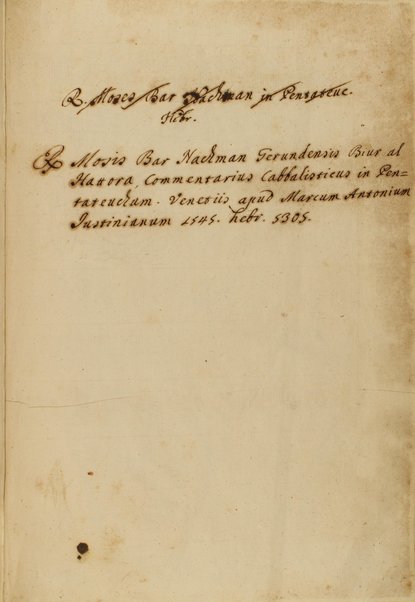 R. Moses Bar Nachman in Pentateuc.
Hebr.
R Mosis Bar Nachman Gerundensis Biur al
Hattora, Commentarius Cabbalisticus in Pen=
tateuchum. Venetiis apud Marcum Antonium
Justinianum 1545. hebr. 5305.